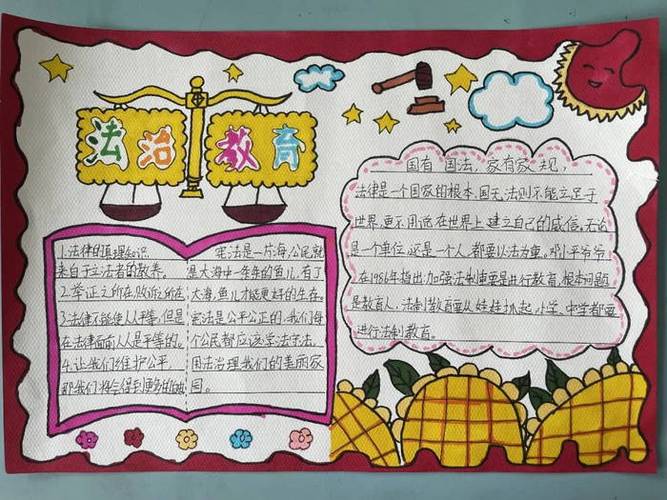 法治教育
1.法律的真理知识
来自于立法者的教养。
2.举证之所在,败诉之所在
3.法律不能使人人平等,但是
在法律面前人人是平等的。
4.让我们维护公平,
那我们将会得到更多的自由
宪法是一片海,公民就
是大海中一条条的鱼儿,有了
大海,鱼儿才能更好的生存。
宪法是公平公正的,我们每
个公民都应该学法守法。
用法治理我们的美丽家
园。
国有国法,家有家规,
法律是一个国家的根本,国无法则不能立足于
世界,更不用说在世界上建立自己的威信,无论
是一个单位,还是一个人,都要以法为重。邓小平爷爷
在1986年指出:加强法制重要是进行教育,根本问题
是教育人,法制教育要从娃娃抓起,小学、中学都要
进行法制教育。